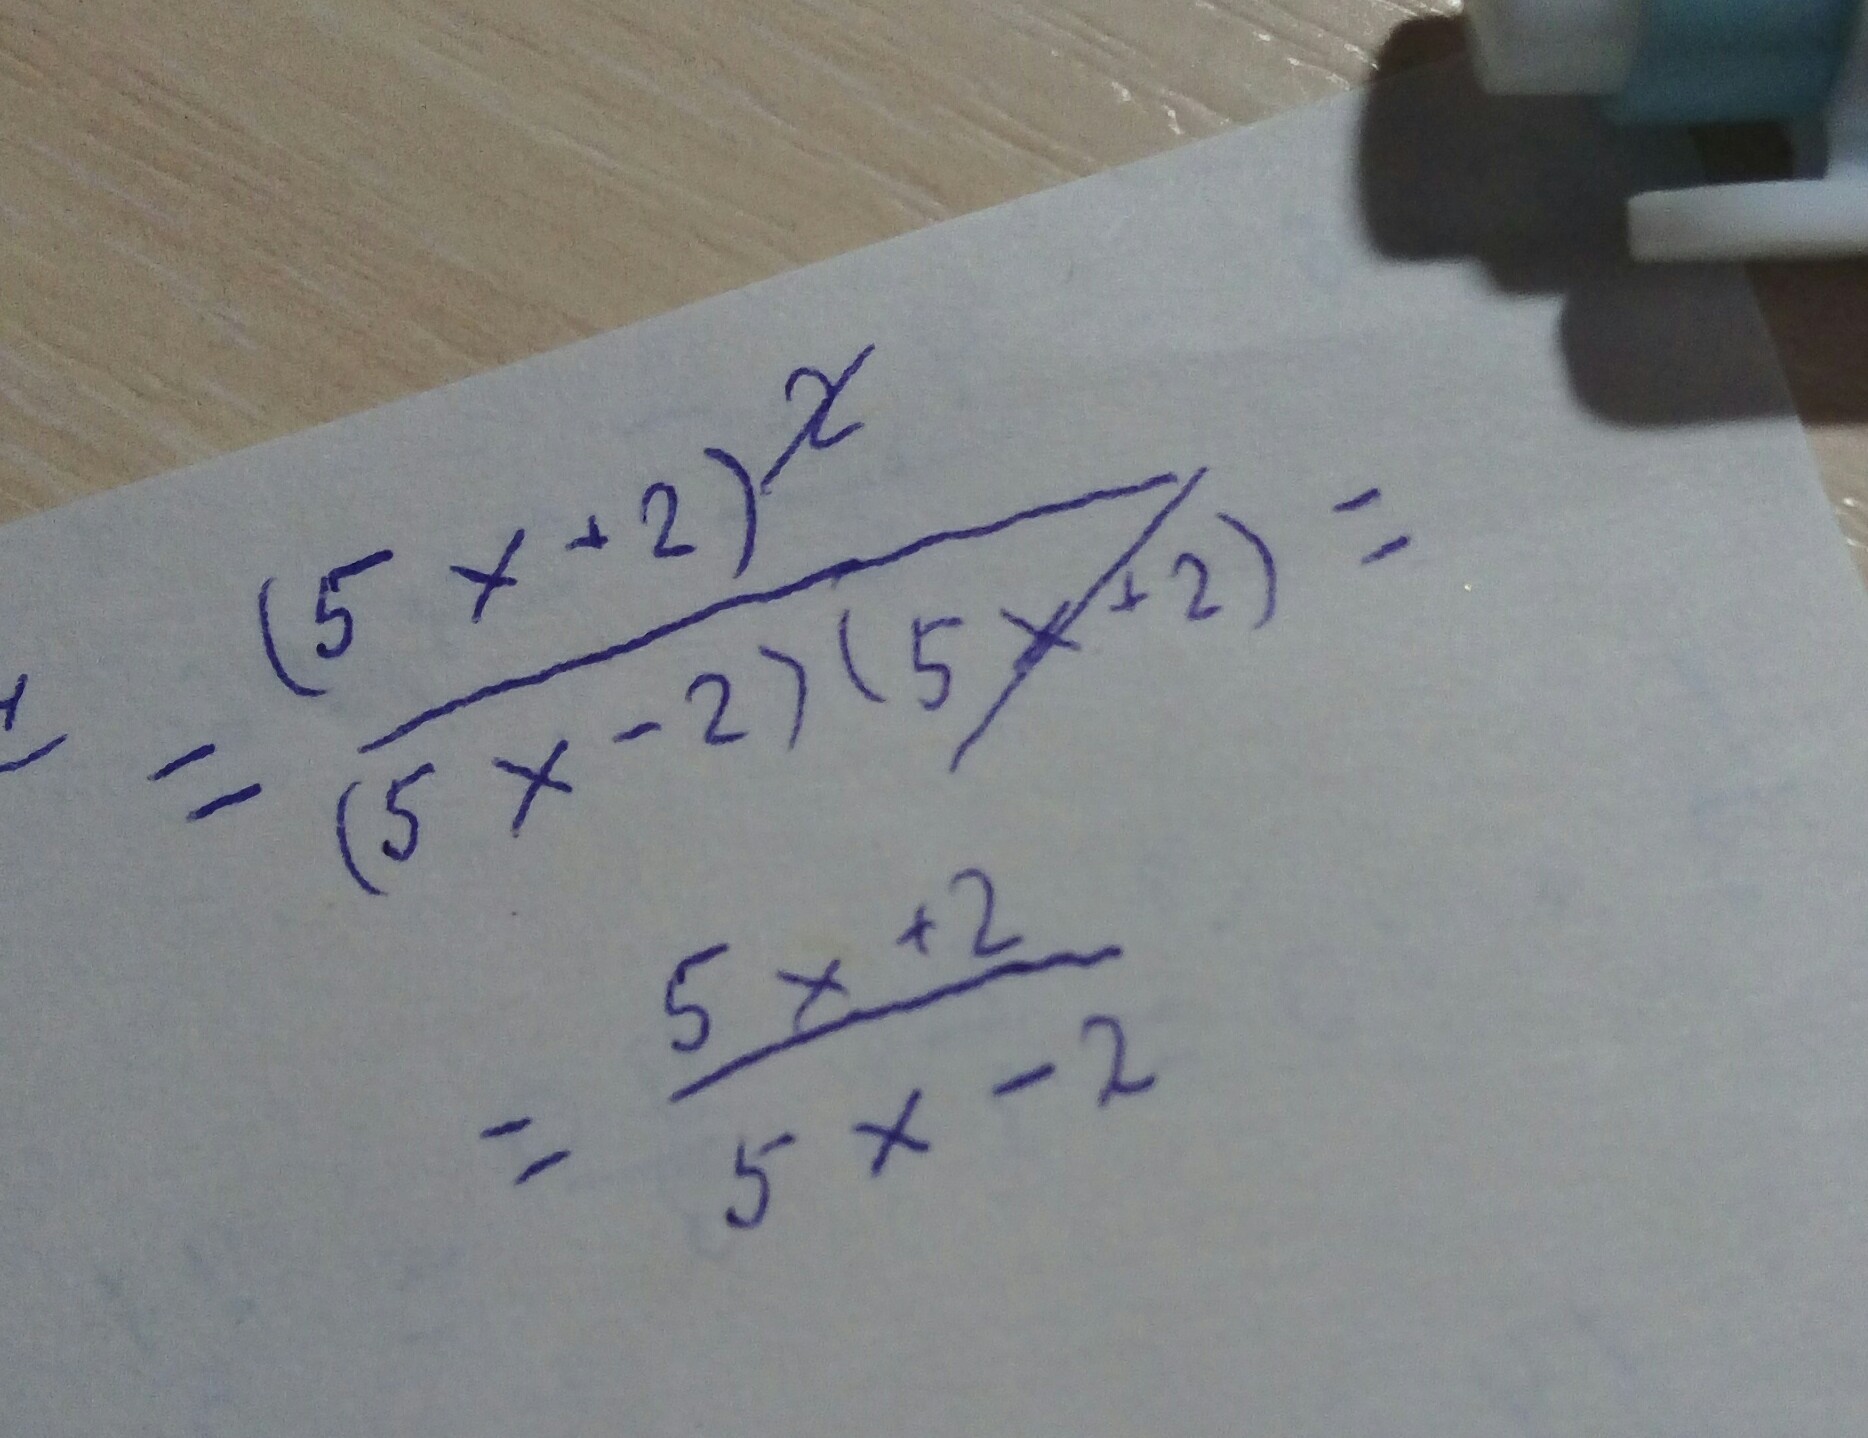 = (5x+2)² / (5x-2)(5x+2) =
= 5x+2 / 5x-2